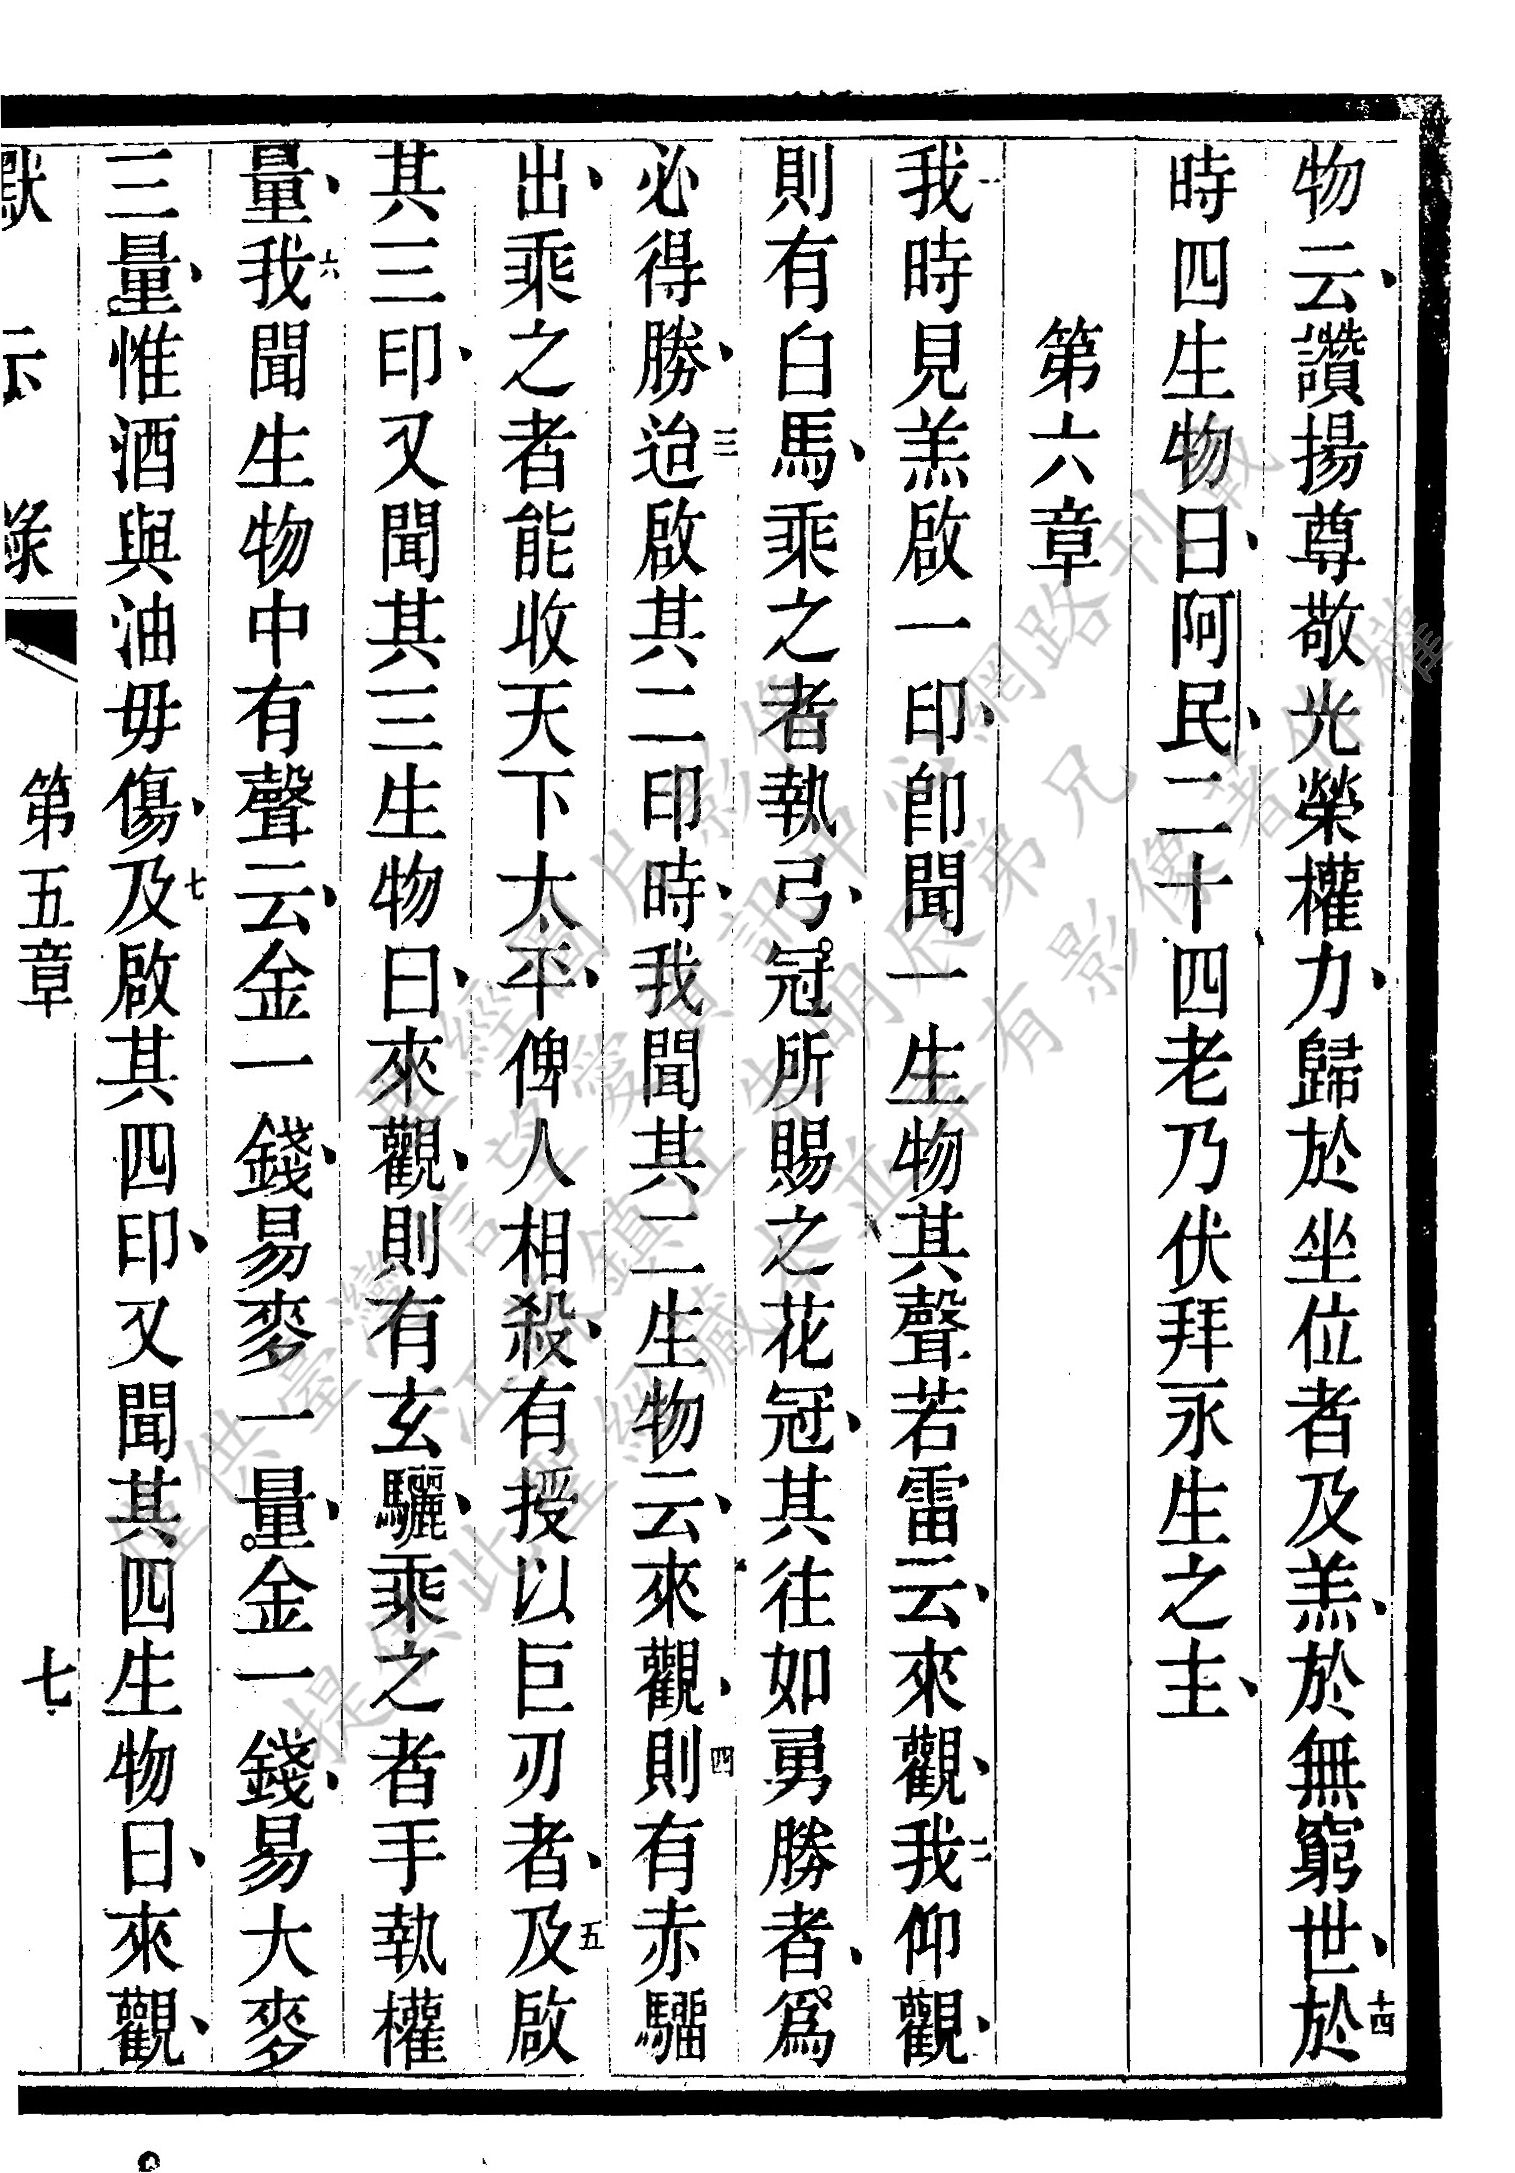 物云、讚揚尊敬光榮權力、歸於坐位者及羔、於無窮世、十四於
時四生物曰、阿民、二十四老乃伏拜永生之主、
第六章
一我時見羔啟一印、卽聞一生物其聲若雷云、來觀、二我仰觀、
則有白馬、乘之者執弓、冠所賜之花冠、其往如勇勝者、爲
必得勝、三迨啟其二印時、我聞其二生物云、來觀、四則有赤騮
出、乘之者能收天下太平、俾人相殺、有授以巨刃者、五及啟
其三印、又聞其三生物曰、來觀、則有玄驪、乘之者手執權
量、六我聞生物中有聲云、金一錢、易麥一量、金一錢、易大麥
三量、惟酒與油毋傷、七及啟其四印、又聞其四生物曰、來觀、
默示錄 第五章 七
僅供臺灣信望愛資訊中心網路刊載